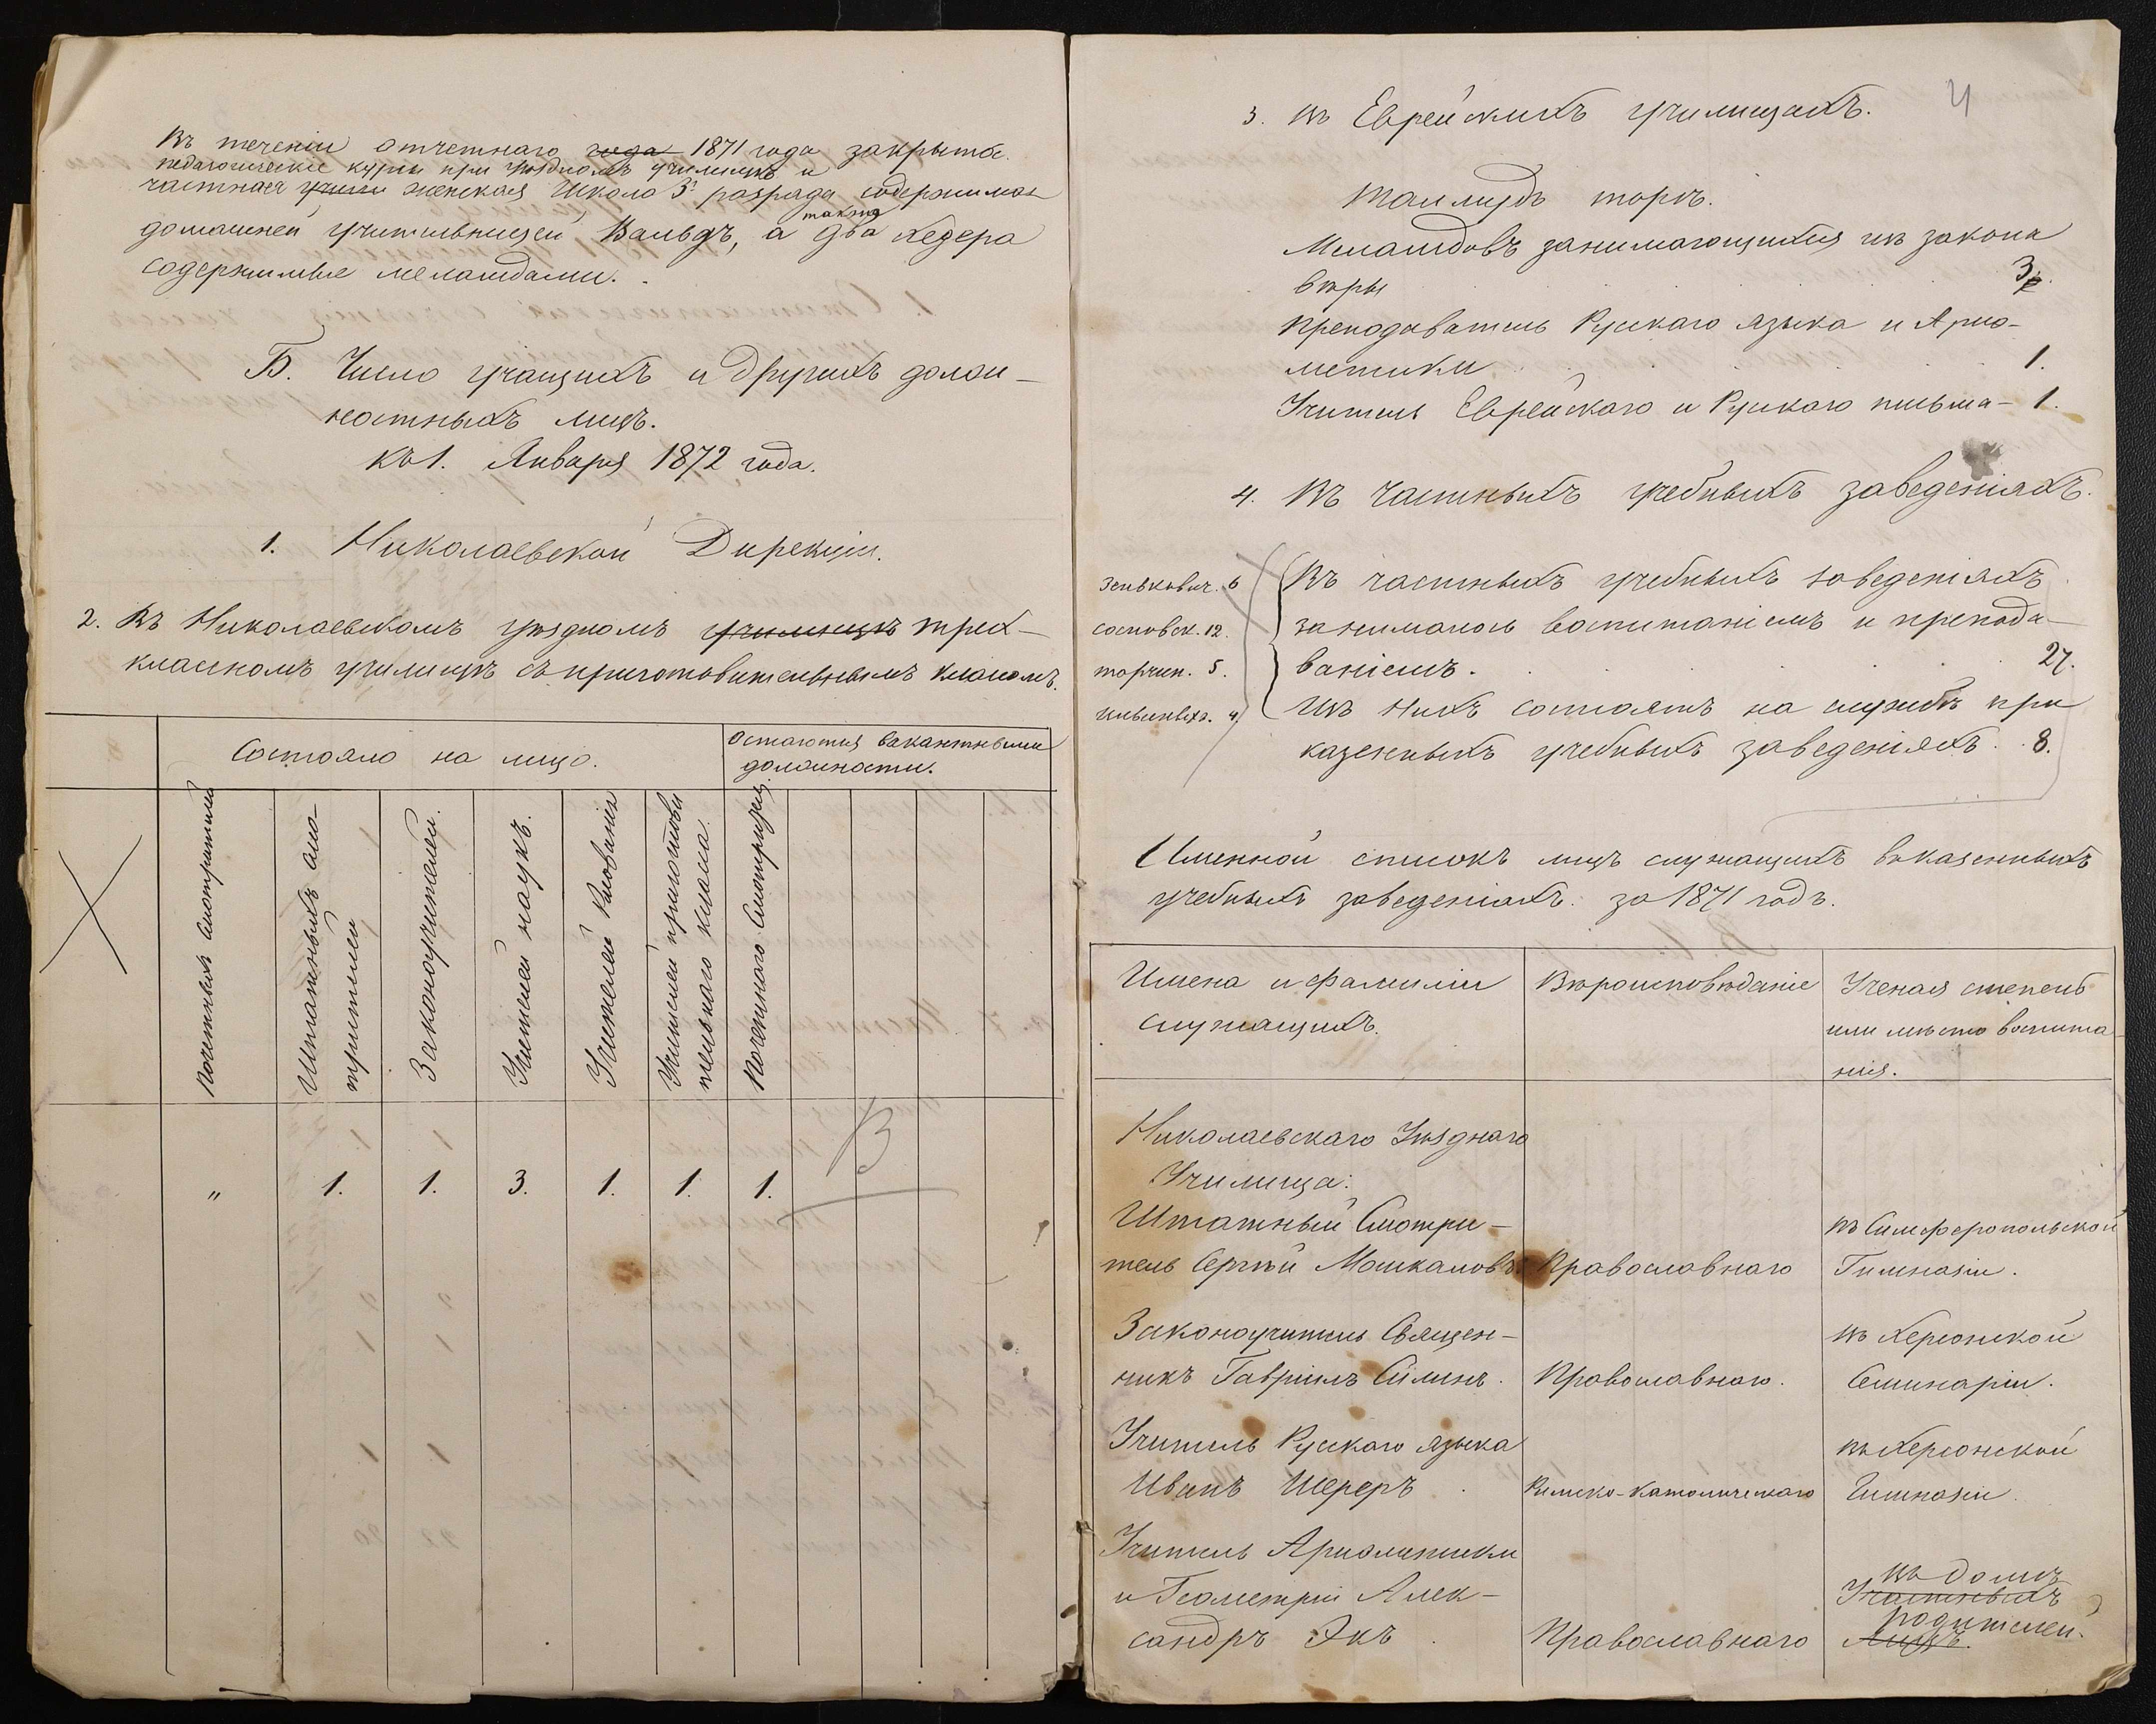 Въ теченіи отчетнаго года 1871 года закрыты
педагогическіе курсы при Уѣздномъ училищѣ и
частная учили женская школа 3 разряда содержимая
домашней учительницей Вальдъ, а также два хедера
содержимые меламдами.
Б. Число учащихъ и другихъ долж-
ностныхъ лицъ.
къ 1. Января 1872 года.
1. Николаевской Дирекціи.
2. Въ Николаевскомъ уѣздномъ училищѣ трех-
классномъ училищѣ съ приготовительнымъ классомъ.
Состояло на лицо.
Остаются вакантными
должности.
Почетныхъ Смотрителей
Штатныхъ Смо-
трителей
Законоучителей.
Учителей наукъ.
Учителей Рисованія
Учителей приготови
тельнаго класса.
Почетнаго Смотрителя
" 1. 1. 3. 1. 1. 1.
В
4
3. въ Еврейскихъ училищахъ.
Талмудъ торѣ.
Меламдовъ занимающихся изъ закона
вѣры 3.
Преподаватель Рускаго языка и Арио-
метики 1.
Учитель Еврейскаго и Рускаго письма - 1.
4. Въ частныхъ учебныхъ заведеніяхъ.
Зенькович. 6
Сосновск. 12.
торчин. 5.
4
Въ частныхъ учебныхъ заведеніяхъ
занималось воспитаніемъ и препода-
ваніемъ. 27.
Изъ нихъ состоятъ на службѣ при
казенныхъ учебныхъ заведеніяхъ. 8.
Именной списокъ лицъ служащихъ въ казенныхъ
учебныхъ заведеніяхъ. за 1871 годъ.
Имена и фамиліи
служащихъ.
Вѣроисповѣданіе
Ученая степень
или мѣсто воспита-
нія.
Николаевскаго Уѣзднаго
Училища:
Штатный Смотри-
тель Сергѣй Машкаловъ. Православнаго
въ Симферопольской
Гимназіи.
Законоучитель Священ-
никъ Гавріилъ Силинъ. Православнаго.
въ Херсонской
Семинаріи.
Учитель Рускаго языка
Иванъ Шереръ. Римско-Католическаго
въ Херсонской
Гимназіи.
Учитель Ариометики
и Геометріи Алек-
сандръ Экъ. Православнаго
въ домѣ
Участныхъ
родителей.
Лицъ.